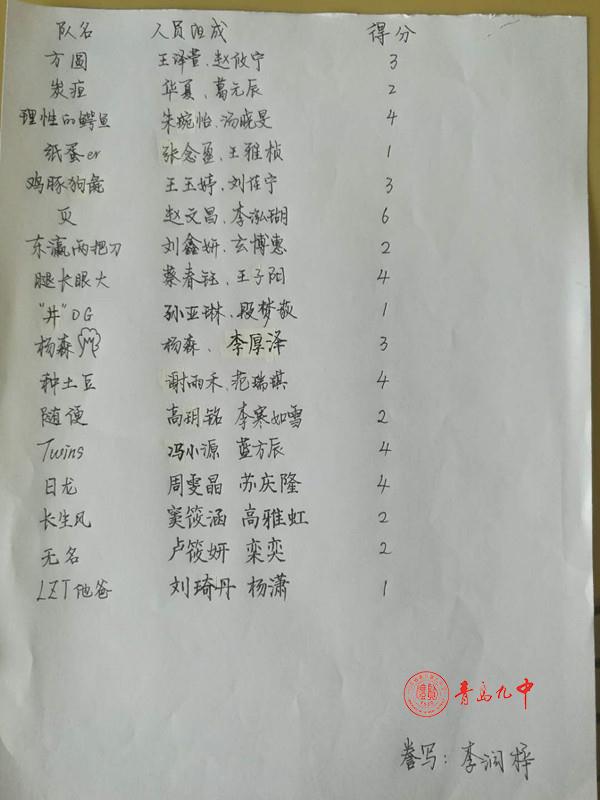 队名 人员组成 得分
方圆 王泽萱、赵攸宁 3
炭疽 华夏、葛元辰 2
理性的鳄鱼 朱琬怡、汤晓旻 4
纸蛋er 张念盈、王雅桢 1
鸡豚狗彘 王玉婷、刘佳宁 3
页 赵文昌、李泓瑚 6
东瀛两把刀 刘鑫妍、玄博惠 2
腿长眼大 蔡春钰、王子阳 4
"井"OG 孙亚琳、段梦敬 1
杨森 杨森、李厚泽 3
种土豆 谢雨禾、范瑞琪 4
随便 高玥铭 李寒如雪 2
Twins 冯小源 蓝方辰 4
日龙 周雯晶 苏庆隆 4
长生风 窦筱涵 高雅虹 2
无名 卢筱妍 栾奕 2
LZT他爸 刘琦丹 杨潇 1
青岛九中
誊写：李润梓